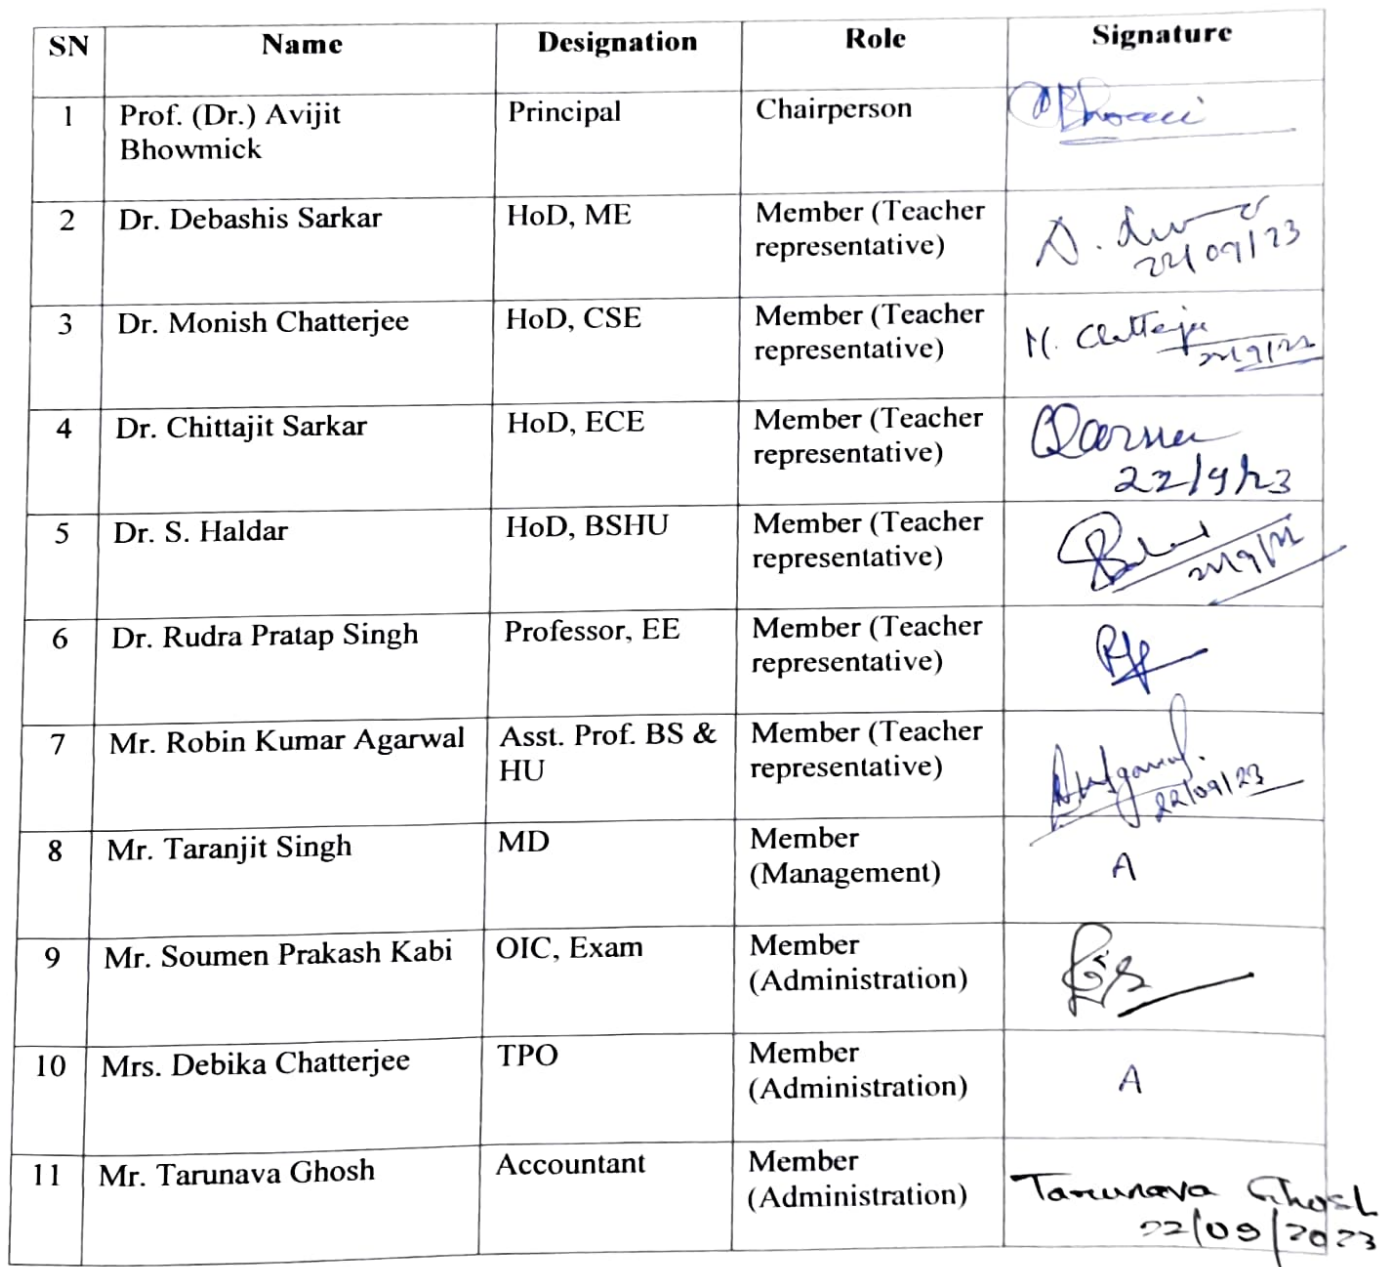 SN Name Designation Role Signature
1 Prof. (Dr.) Avijit Principal Chairperson
Bhowmick
2 Dr. Debashis Sarkar HoD, ME Member (Teacher
representative) 22/09/23
3 Dr. Monish Chatterjee HoD, CSE Member (Teacher M. Chatterjee
representative)
4 Dr. Chittajit Sarkar HoD, ECE Member (Teacher
representative) 22/9/23
5 Dr. S. Haldar HoD, BSHU Member (Teacher
representative)
6 Dr. Rudra Pratap Singh Professor, EE Member (Teacher
representative)
7 Mr. Robin Kumar Agarwal Asst. Prof. BS & Member (Teacher
HU representative) 22/09/23
8 Mr. Taranjit Singh MD Member
(Management) A
9 Mr. Soumen Prakash Kabi OIC, Exam Member
(Administration)
10 Mrs. Debika Chatterjee TPO Member
(Administration) A
11 Mr. Tarunava Ghosh Accountant Member
(Administration) Tarunava Ghosh
22/09/2023